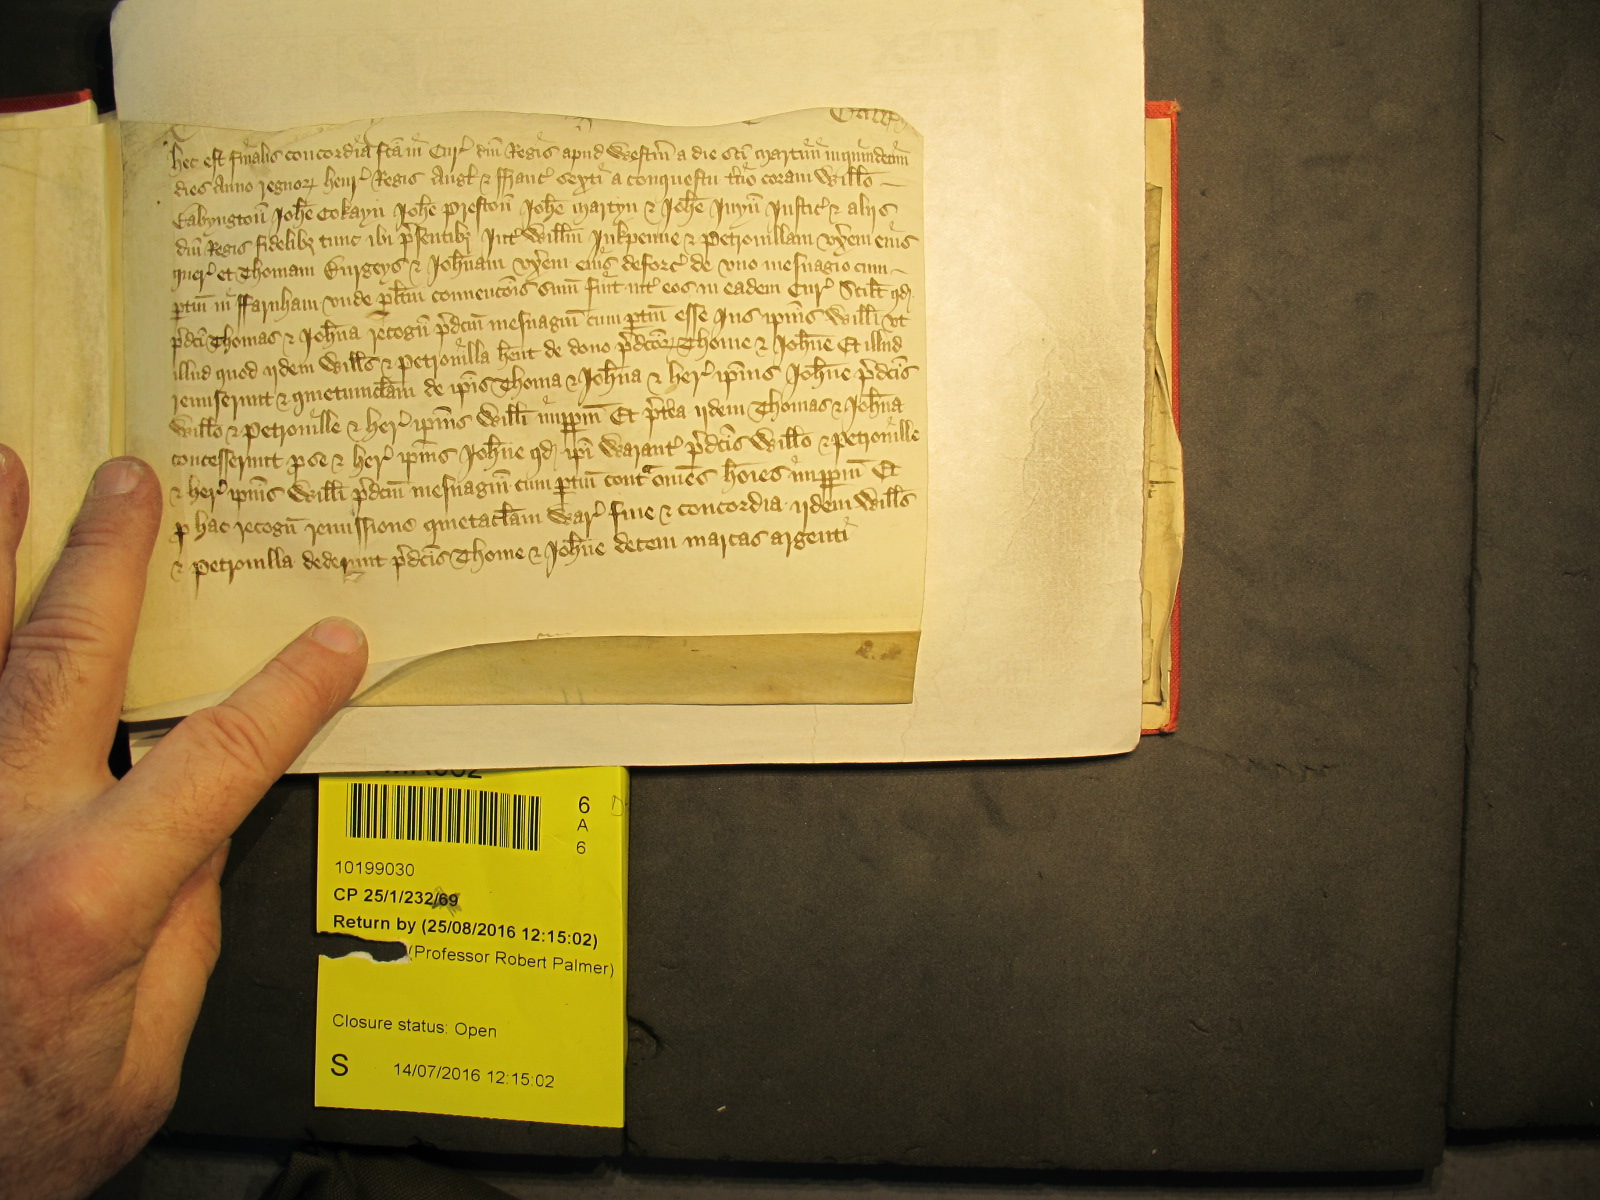 hec est finalis concordia fca in Cur dni Regis apud Westm a die sci Martini in quindecim
dies Anno regnor henr Regis Angl & ffranc sexti a conquestu tcio coram Willo
Babyngton Johe Cokayn Johe Preston Johe Martyn & Johe Juyn Justic & aliis
dni Regis fidelibz tunc ibi psentibz Int Willm Inkpenne & Petronillam vxem eius
quer et Thomam Burgeys & Johnam vxem eius deforc de vno mesuagio cum
ptin in ffarnham vnde plitm convencois sum fuit int eos in eadem Cur Scilt qd
pdci Thomas & Johna recogn pdcm mesuagiu cum ptin esse Jus ipius Willi vt
illud quod iidem Wills & Petronilla hent de dono pdcor Thome & Johne Et illud
remiserunt & quietumclam de ipis Thoma & Johna & her ipius Johne pdcis
Willo & Petronille & her ipius Willi imppm Et ptea iidem Thomas & Johna
concesserunt p se & her ipius Johne qd ipi Warant pdcis Willo & Petronille
& her ipius Willi pdcm mesuagiu cum ptin cont omes hoies imppm Et
p hac recogn remissione quietaclam War fine & concordia iidem Wills
& Petronilla dederunt pdcis Thome & Johne decem marcas argenti
6
A
6
10199030
CP 25/1/232/69
Return by (25/08/2016 12:15:02)
(Professor Robert Palmer)
Closure status: Open
S 14/07/2016 12:15:02